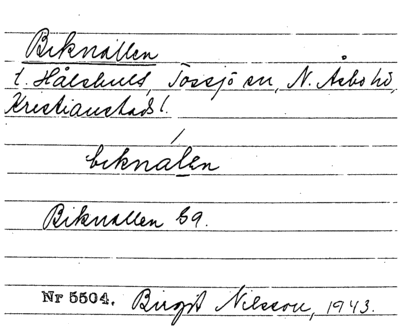 Biknallen
t. Hålshult, Tossjö sn, N. Åsbo hd,
Kristianstads l.
biknálen
Biknallen Eg.
Nr 5504. Birgit Nilsson, 1943.